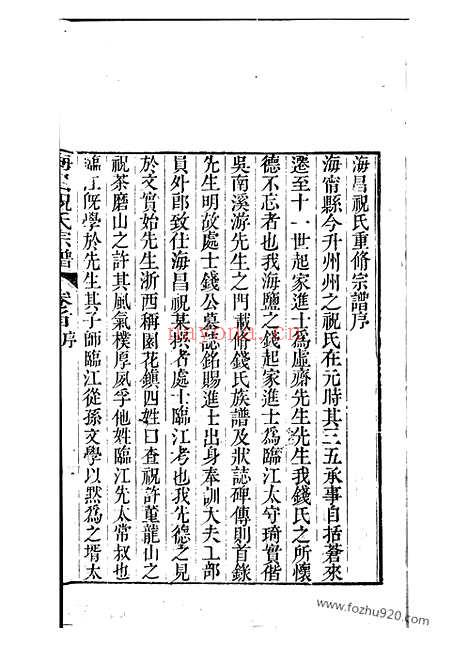 海昌祝氏重修宗譜序
海甯縣今升州州之祝氏在元時其三五承事自括蒼來
遷至十一世起家進士爲虛齋先生先生我錢氏之所懷
德不忘者也我海鹽之錢起家進士爲臨江太守琦實偕
吳南溪游先生之門載脩錢氏族譜及狀誌碑傳則首錄
先生明故處士錢公墓誌銘賜進士出身奉訓大夫工部
員外郎致仕海昌祝某撰者處士臨江考也我先德之見
於文實始先生浙西稱園花鎮四姓曰查祝許董龍山之
祝茶磨山之許其風氣樸厚夙孚他姓臨江先太常叔也
臨江旣學於先生其子師臨江從孫文學以黙爲之壻太
海寧祝氏宗譜
卷首
序
nayona.cn
www.fozhu920.com